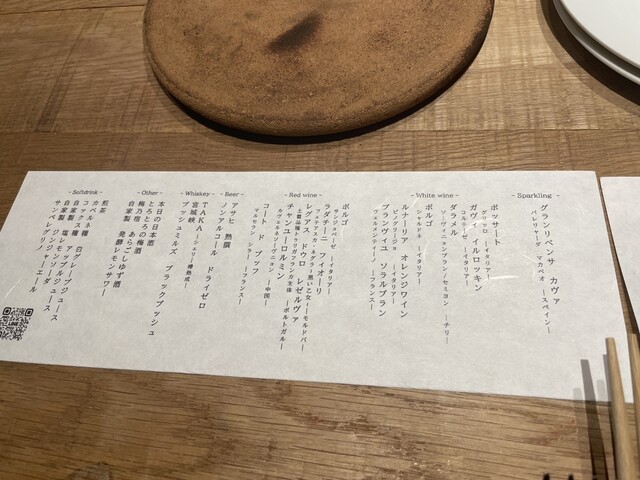 - Sparkling -
グラン リベンサ カヴァ
- White wine -
ボッサート
グリッロ ーイタリアー
ガヴィ イルロッキン
コルテーゼ ーイタリアー
ダラメル
ソーヴィニヨンブラン・セミヨン ーチリー
ボルゴ
シャルドネ ーイタリアー
ルナーリア オレンジワイン
ピノグリージョ ーイタリアー
ブランヴィユ ソラルブラン
ヴェルメンティーノ ーフランスー
- Red wine -
ボルゴ
サンジョベーゼ ーイタリアー
ラダチーニ フィオーリ
レグアス ドウロ レゼルヴァ
チャンユーロルミン
カヴェルネソーヴニヨン ー中国ー
コート ド ブッフ
マルセラン シラー ーフランスー
- Beer -
アサヒ 熟撰
ノンアルコール ドライゼロ
- Whiskey -
TAKA ーシェリー樽熟成ー
宮城峡
ブッシュミルズ ブラックブッシュ
- Other -
本日の日本酒
とろとろの梅酒
梅乃宿 あらごしゆず酒
自家製 発酵レモンサワー
- Softdrink -
煎茶
カベルネ種 白グレープジュース
コックス種 アップルジュース
自家製 塩レモンソーダ
自家製 ジンジャーエール
サンペレグリノ